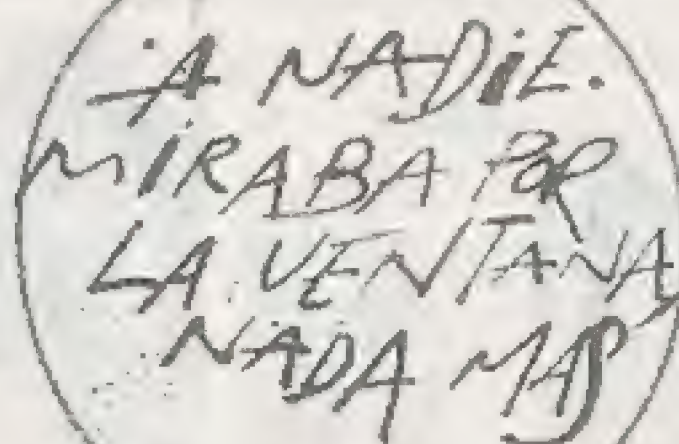 A NADIE.
MIRABA POR
LA VENTANA
NADA MAS